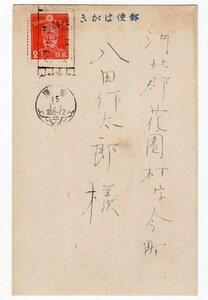 郵便はがき
河北郡花園村字今町
八田作太郎様
2
15